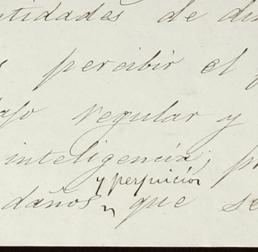 tidades de di
percibir el
regular y
inteligencia, p
y perjuicios
daños que se